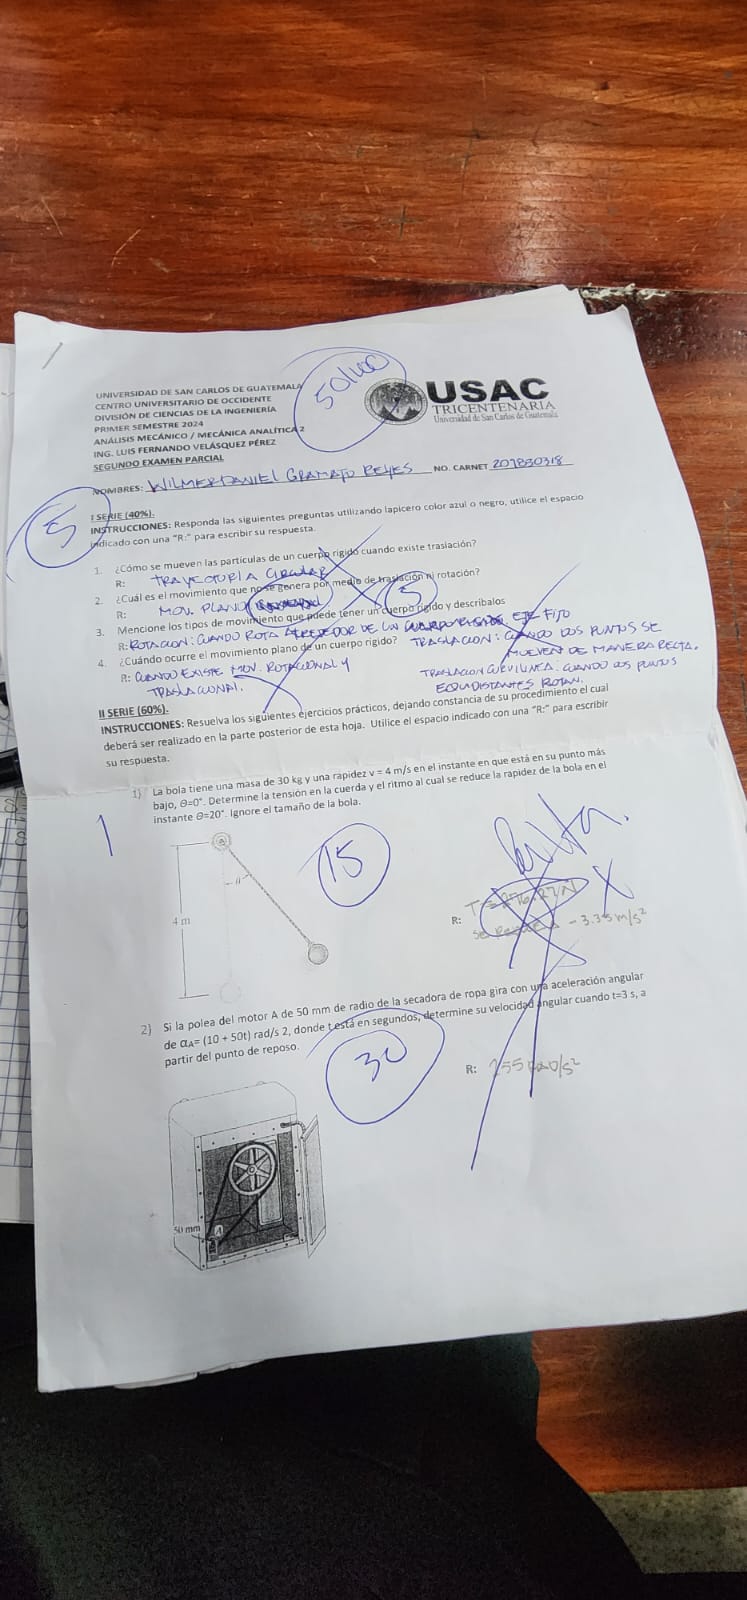 UNIVERSIDAD DE SAN CARLOS DE GUATEMALA
CENTRO UNIVERSITARIO DE OCCIDENTE
DIVISIÓN DE CIENCIAS DE LA INGENIERÍA
PRIMER SEMESTRE 2024
ANÁLISIS MECÁNICO / MECÁNICA ANALÍTICA 2
ING. LUIS FERNANDO VELÁSQUEZ PÉREZ
SEGUNDO EXAMEN PARCIAL
50/100
USAC
TRICENTENARIA
Universidad de San Carlos de Guatemala
NOMBRES: WILMER DANIEL GRAMAJO REYES NO. CARNET 201830318
5
I SERIE (40%).
INSTRUCCIONES: Responda las siguientes preguntas utilizando lapicero color azul o negro, utilice el espacio
indicado con una "R:" para escribir su respuesta.
1. ¿Cómo se mueven las partículas de un cuerpo rígido cuando existe traslación?
R: TRAYECTORIA CIRCULAR
2. ¿Cuál es el movimiento que no se genera por medio de traslación ni rotación?
R: MOV. PLANO
5
3. Mencione los tipos de movimiento que puede tener un cuerpo rígido y descríbalos
R: ROTACION: CUANDO ROTA ALREDEDOR DE UN EJE FIJO
TRASLACION: CUANDO DOS PUNTOS SE
MUEVEN DE MANERA RECTA.
TRASLACION CURVILINEA: CUANDO DOS PUNTOS
EQUIDISTANTES ROTAN.
4. ¿Cuándo ocurre el movimiento plano de un cuerpo rígido?
R: CUANDO EXISTE MOV. ROTACIONAL Y
TRASLACIONAL.
II SERIE (60%).
INSTRUCCIONES: Resuelva los siguientes ejercicios prácticos, dejando constancia de su procedimiento el cual
deberá ser realizado en la parte posterior de esta hoja. Utilice el espacio indicado con una "R:" para escribir
su respuesta.
1) La bola tiene una masa de 30 kg y una rapidez v = 4 m/s en el instante en que está en su punto más
bajo, θ=0°. Determine la tensión en la cuerda y el ritmo al cual se reduce la rapidez de la bola en el
instante θ=20°. Ignore el tamaño de la bola.
1
15
θ
4 m
R:
- 3.35 m/s²
2) Si la polea del motor A de 50 mm de radio de la secadora de ropa gira con una aceleración angular
de αA= (10 + 50t) rad/s 2, donde t está en segundos, determine su velocidad angular cuando t=3 s, a
partir del punto de reposo.
30
R: 255 rad/s²
50 mm
A